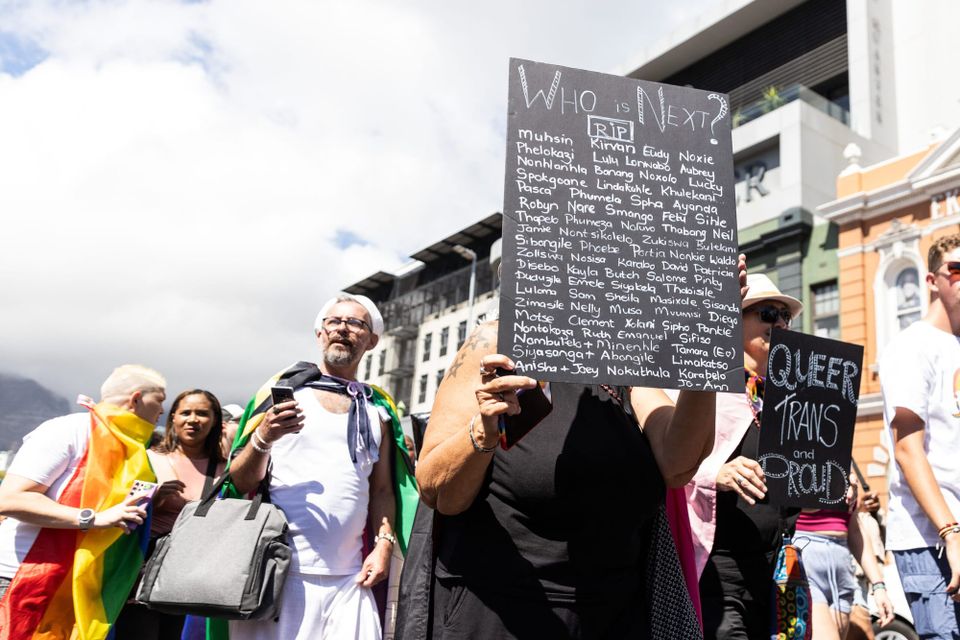 WHO is NEXT?
RIP
Muhsin Kirvan Eudy Noxie
Phelokazi Lulu Lonwabo Aubrey
Nonhlanhla Banang Noxolo Lucky
Spokgoane Lindokuhle Khulekani
Pasca Phumela Sipha Ayanda
Robyn Nare Smango Feta Sihle
Thapelo Phumeza Noluvo Thabang Neil
Jamie Nontsikelelo Zukiswa Bulelani
Sibangile Phoebe Portia Nonkie Waldo
Zoliswa Nosisa Karabo David Patricia
Disebo Kayla Butch Salome Pinky
Duduzile Emele Siyakela Thabisile
Luloma Sam Sheila Masixole Sisanda
Zimasile Nelly Musa Mvumisi Diego
Motse Clement Xolani Sipho Pontle
Nontokozo Ruth Emanuel Sifiso
Nombulelo + Minenhle Tamara (Ev)
Siyasanga + Abongile Limakatso
Anisha + Joey Nokuthula Karabelo
Jo-Ann
QUEER
TRANS
and
PROUD